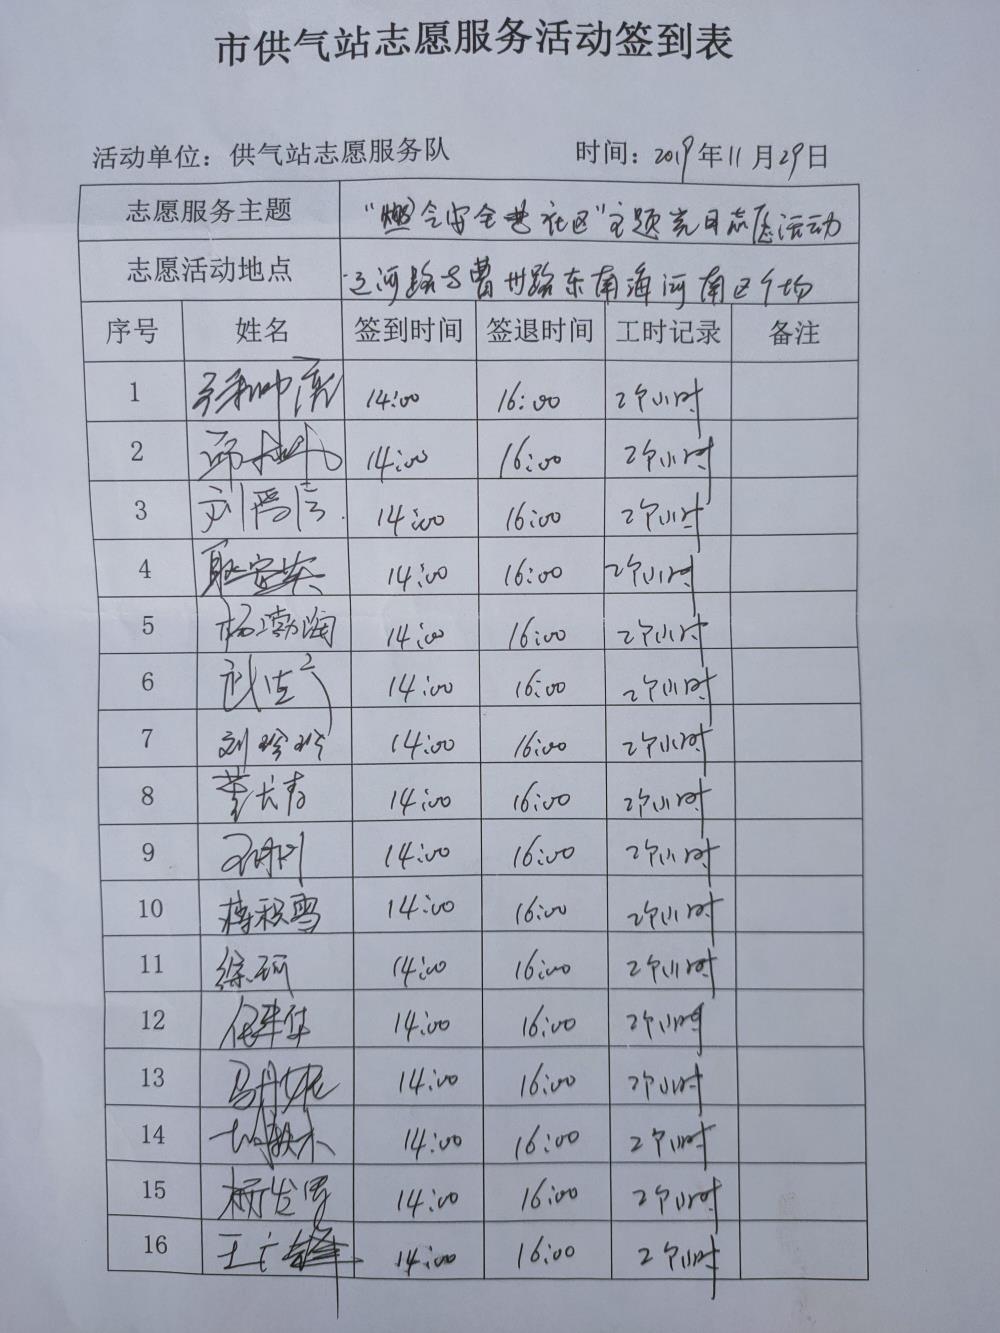 市供气站志愿服务活动签到表
活动单位：供气站志愿服务队 时间：2019年11月29日
志愿服务主题 "燃气安全进社区"主题党日志愿活动
志愿活动地点 辽河路与曹州路东南海河南区广场
序号 姓名 签到时间 签退时间 工时记录 备注
1 14:00 16:00 2个小时
2 14:00 16:00 2个小时
3 14:00 16:00 2个小时
4 14:00 16:00 2个小时
5 杨渤海 14:00 16:00 2个小时
6 14:00 16:00 2个小时
7 刘玲玲 14:00 16:00 2个小时
8 董长青 14:00 16:00 2个小时
9 14:00 16:00 2个小时
10 蒋积雪 14:00 16:00 2个小时
11 徐珂 14:00 16:00 2个小时
12 14:00 16:00 2个小时
13 14:00 16:00 2个小时
14 14:00 16:00 2个小时
15 14:00 16:00 2个小时
16 王广锋 14:00 16:00 2个小时